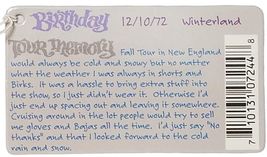 Birthday 12/10/72 Winterland
Tour Memory Fall Tour in New England
would always be cold and snowy but no matter
what the weather I was always in shorts and
Birks. It was a hassle to bring extra stuff into
the show, so I just didn't wear it. Otherwise I'd
just end up spacing out and leaving it somewhere.
Cruising around in the lot people would try to sell
me gloves and Bajas all the time. I'd just say "No
thanks" and that I looked forward to the cold
rain and snow.
7 10131 07244 8